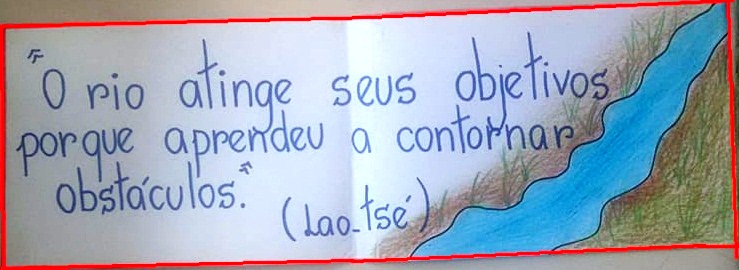 "O rio atinge seus objetivos
porque aprendeu a contornar
obstáculos."
(Lao-tsé)